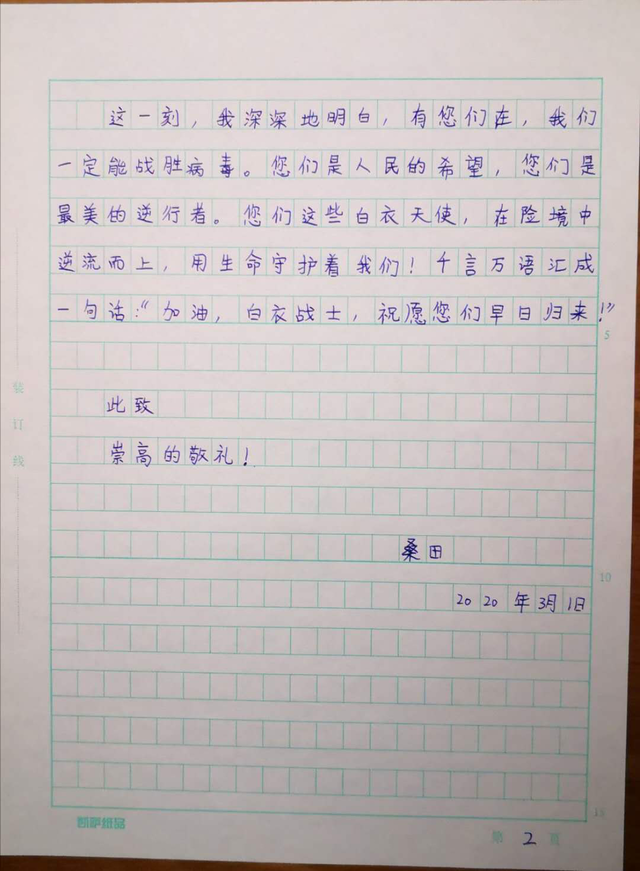 这一刻，我深深地明白，有您们在，我们
一定能战胜病毒。您们是人民的希望，您们是
最美的逆行者。您们这些白衣天使，在险境中
逆流而上，用生命守护着我们！千言万语汇成
一句话：“加油，白衣战士，祝愿您们早日归来！”
5
装订线
此致
崇高的敬礼！
桑田
10
2020年3月1日
15
第2页